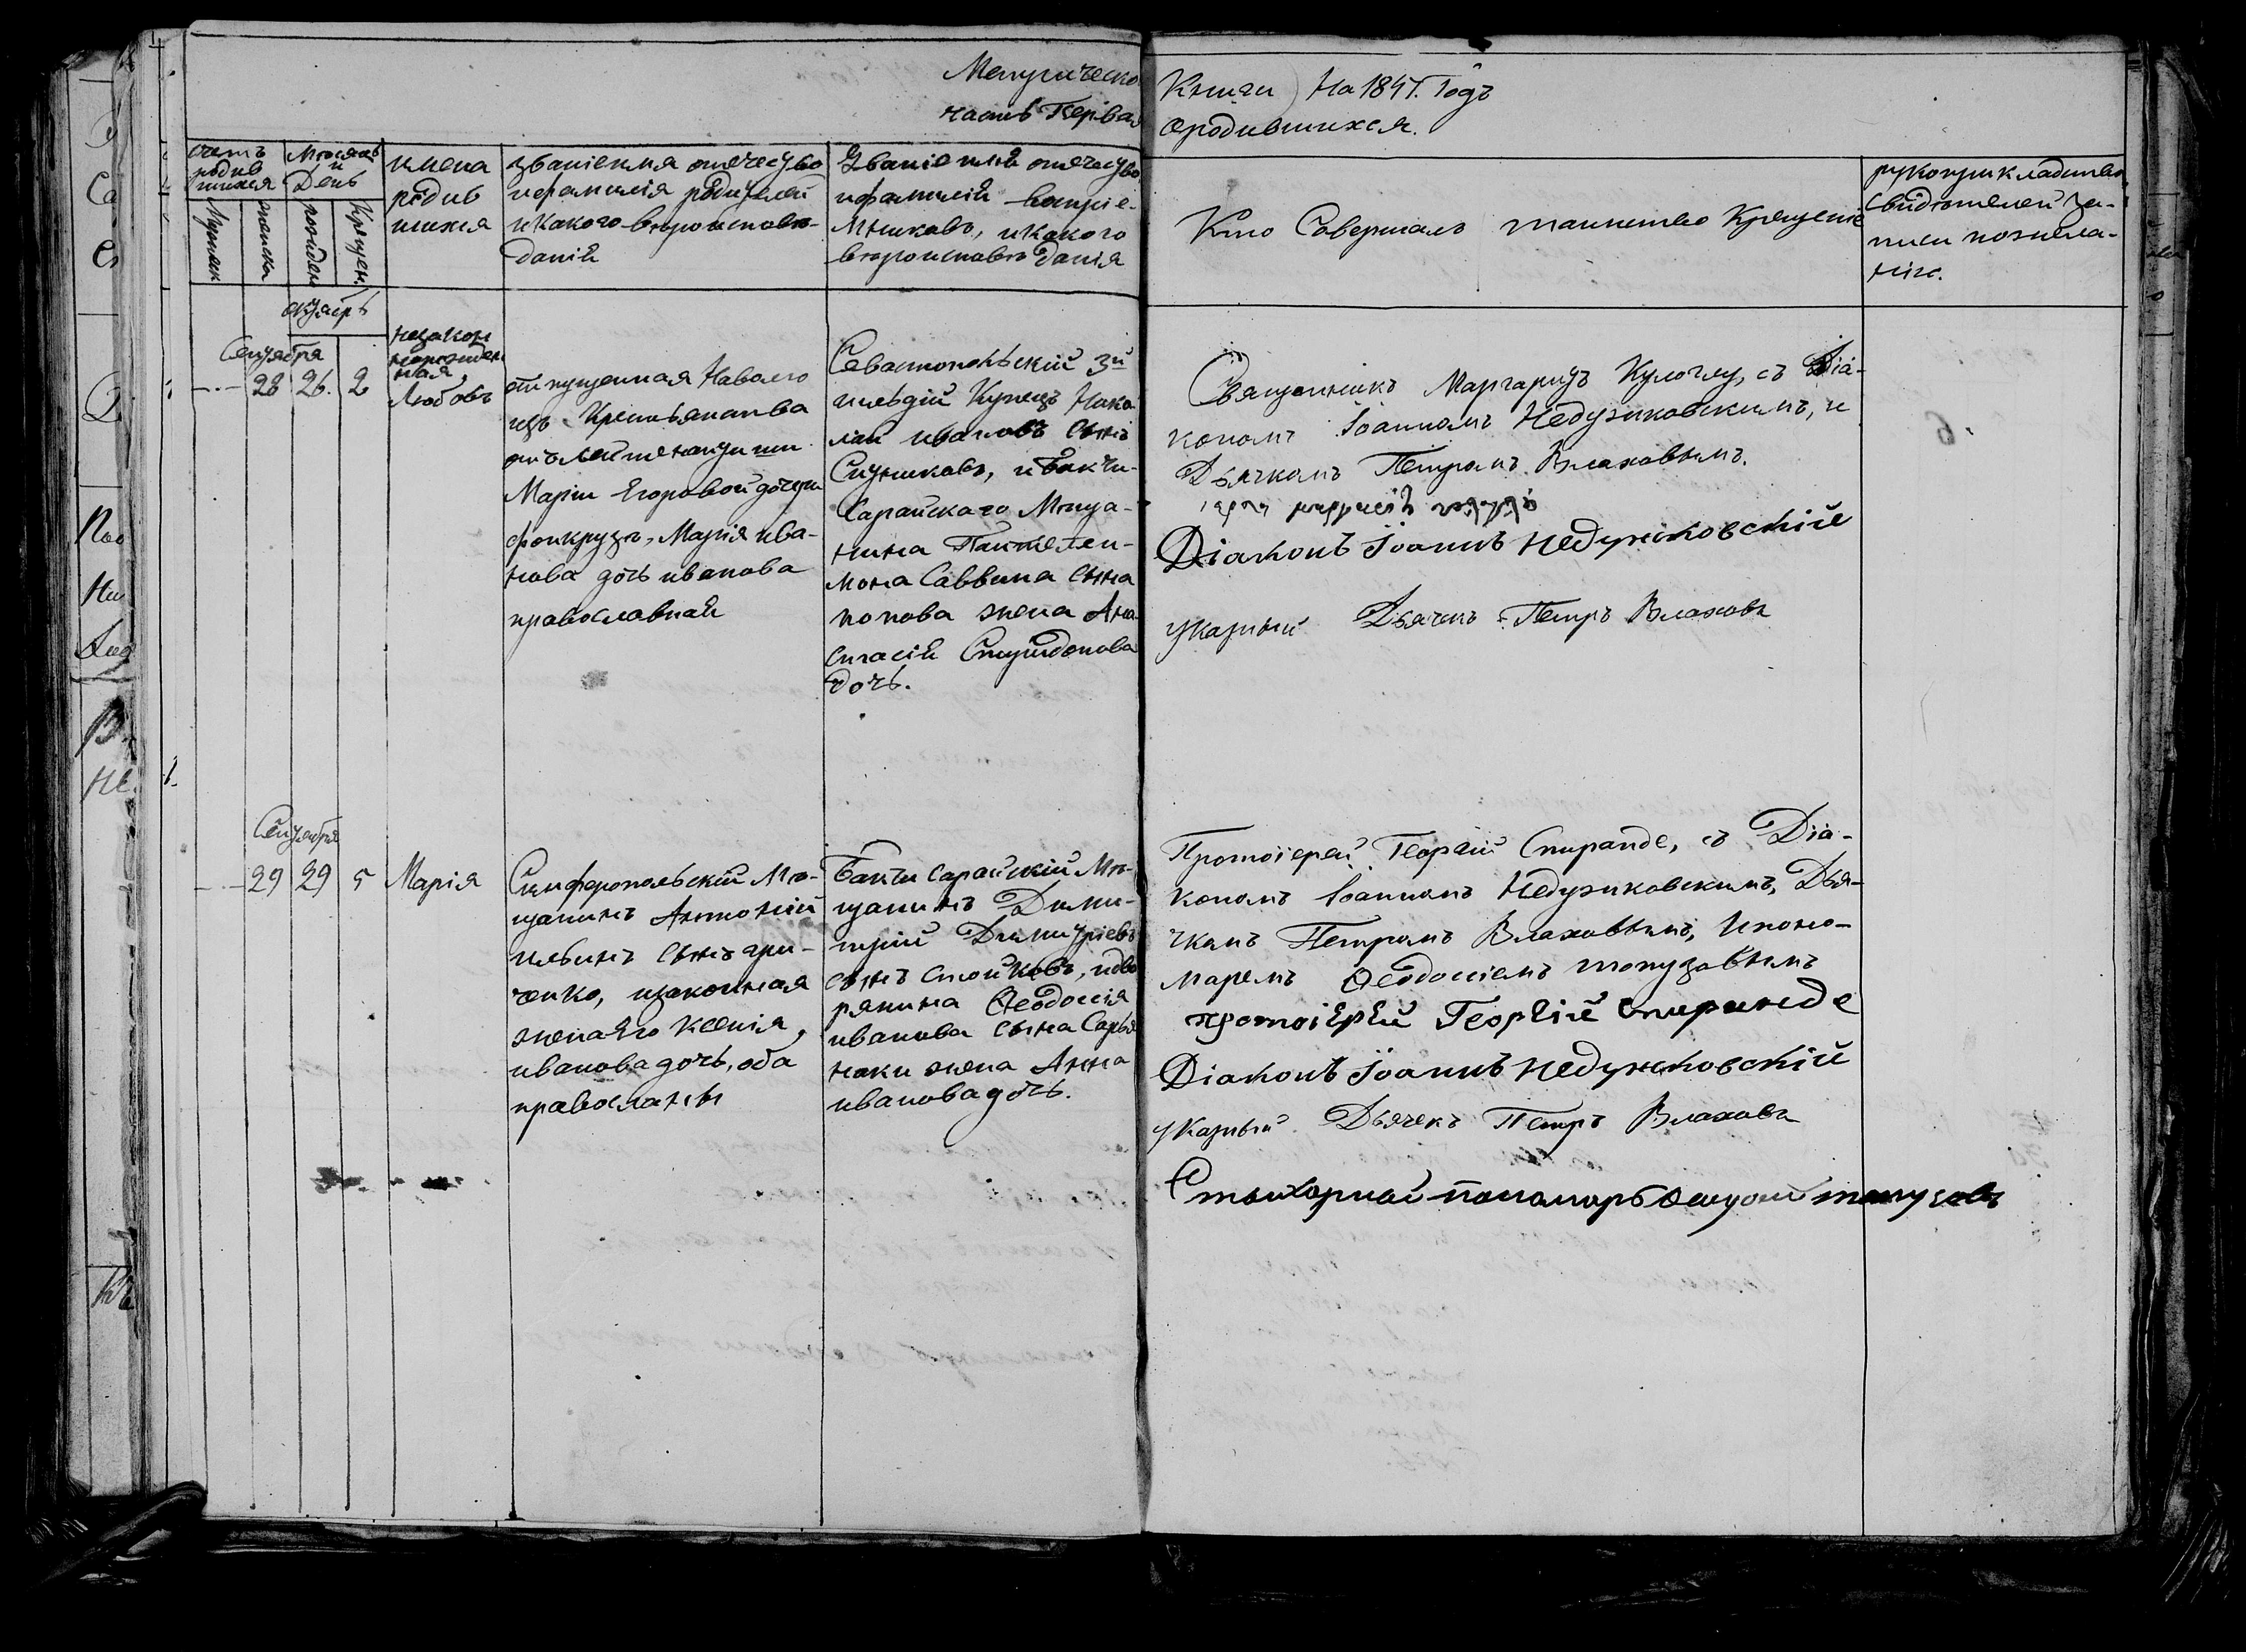 Метрическо
часть Первая
Книги На 1847. Годъ
о родившихся.
счетъ родив шихся
Мужеск
женска
Мѣсяцъ и День
рожден
Крещен
имена родив шихся
званіе имя отечество
и фамилія родителей
и какого вѣроисповѣ-
данія
Званіе имя отечество
и фамилія воспріе-
мниковъ, и какого
вѣроисповѣданія
Кто Совершалъ таинство Крещенія
рукоприкладство
свидѣтелей за-
писи по жела-
нію.
октябрь
Сентября
28 26. 2
незакон
норожден
ная,
Любовь
отпущенная На волю
изъ Крестьянства
отъ лейтенантши
Маріи Егоровой дочери
фонкрузъ, Марія ива-
нова дочь иванова
православная
Севастопольскій 3й
гильдіи Купецъ Нико
лай ивановъ сынъ
Ситниковъ, и Бакчи-
сарайскаго Мѣща-
нина Пантелеи-
мона Саввина сына
попова жена Ана
стасія Спиридонова
дочь.
Священникъ Маргаритъ Кулочлу, съ Діа-
кономъ Іоанномъ Недужковскимъ, и
Дьячкомъ Петромъ Влаховымъ.
Діаконъ Іоаннъ Недужковскій
указный Дьячекъ Петръ Влаховъ
Сентября
29 29 5 Марія
Симферопольскій Мѣ-
щанинъ Антоній
ильинъ сынъ гри-
ченко, и законная
жена его Ксенія,
иванова дочь, оба
православны
Бакчисарайскій Мѣ-
щанинъ Дими-
трій Димитріевъ
сынъ стойковъ, и дво
рянина Ѳеодосія
иванова сына Сарья
наки жена Анна
иванова дочь.
Протоіерей Георгій Спиранде, съ Діа-
кономъ Іоанномъ Недужковскимъ, Дья-
чкомъ Петромъ Влаховымъ, и поно-
маремъ Ѳеодосіемъ топузовымъ
протоіерей Георгій Спиранде
Діаконъ Іоаннъ Недужковскій
указный Дьячекъ Петръ Влаховъ
Стихарной пономарь Ѳеодосій топузовъ